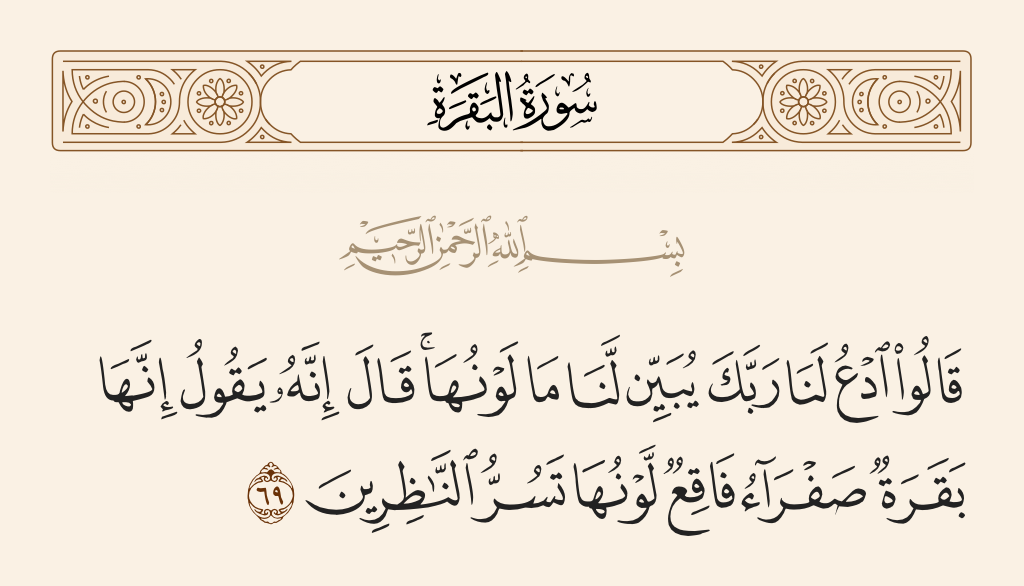 سُورَةُ البَقَرَةِ
بِسْمِ ٱللَّهِ ٱلرَّحْمَٰنِ ٱلرَّحِيمِ
قَالُوا۟ ٱدْعُ لَنَا رَبَّكَ يُبَيِّن لَّنَا مَا لَوْنُهَا ۚ قَالَ إِنَّهُۥ يَقُولُ إِنَّهَا
بَقَرَةٌ صَفْرَآءُ فَاقِعٌ لَّوْنُهَا تَسُرُّ ٱلنَّٰظِرِينَ ٦٩